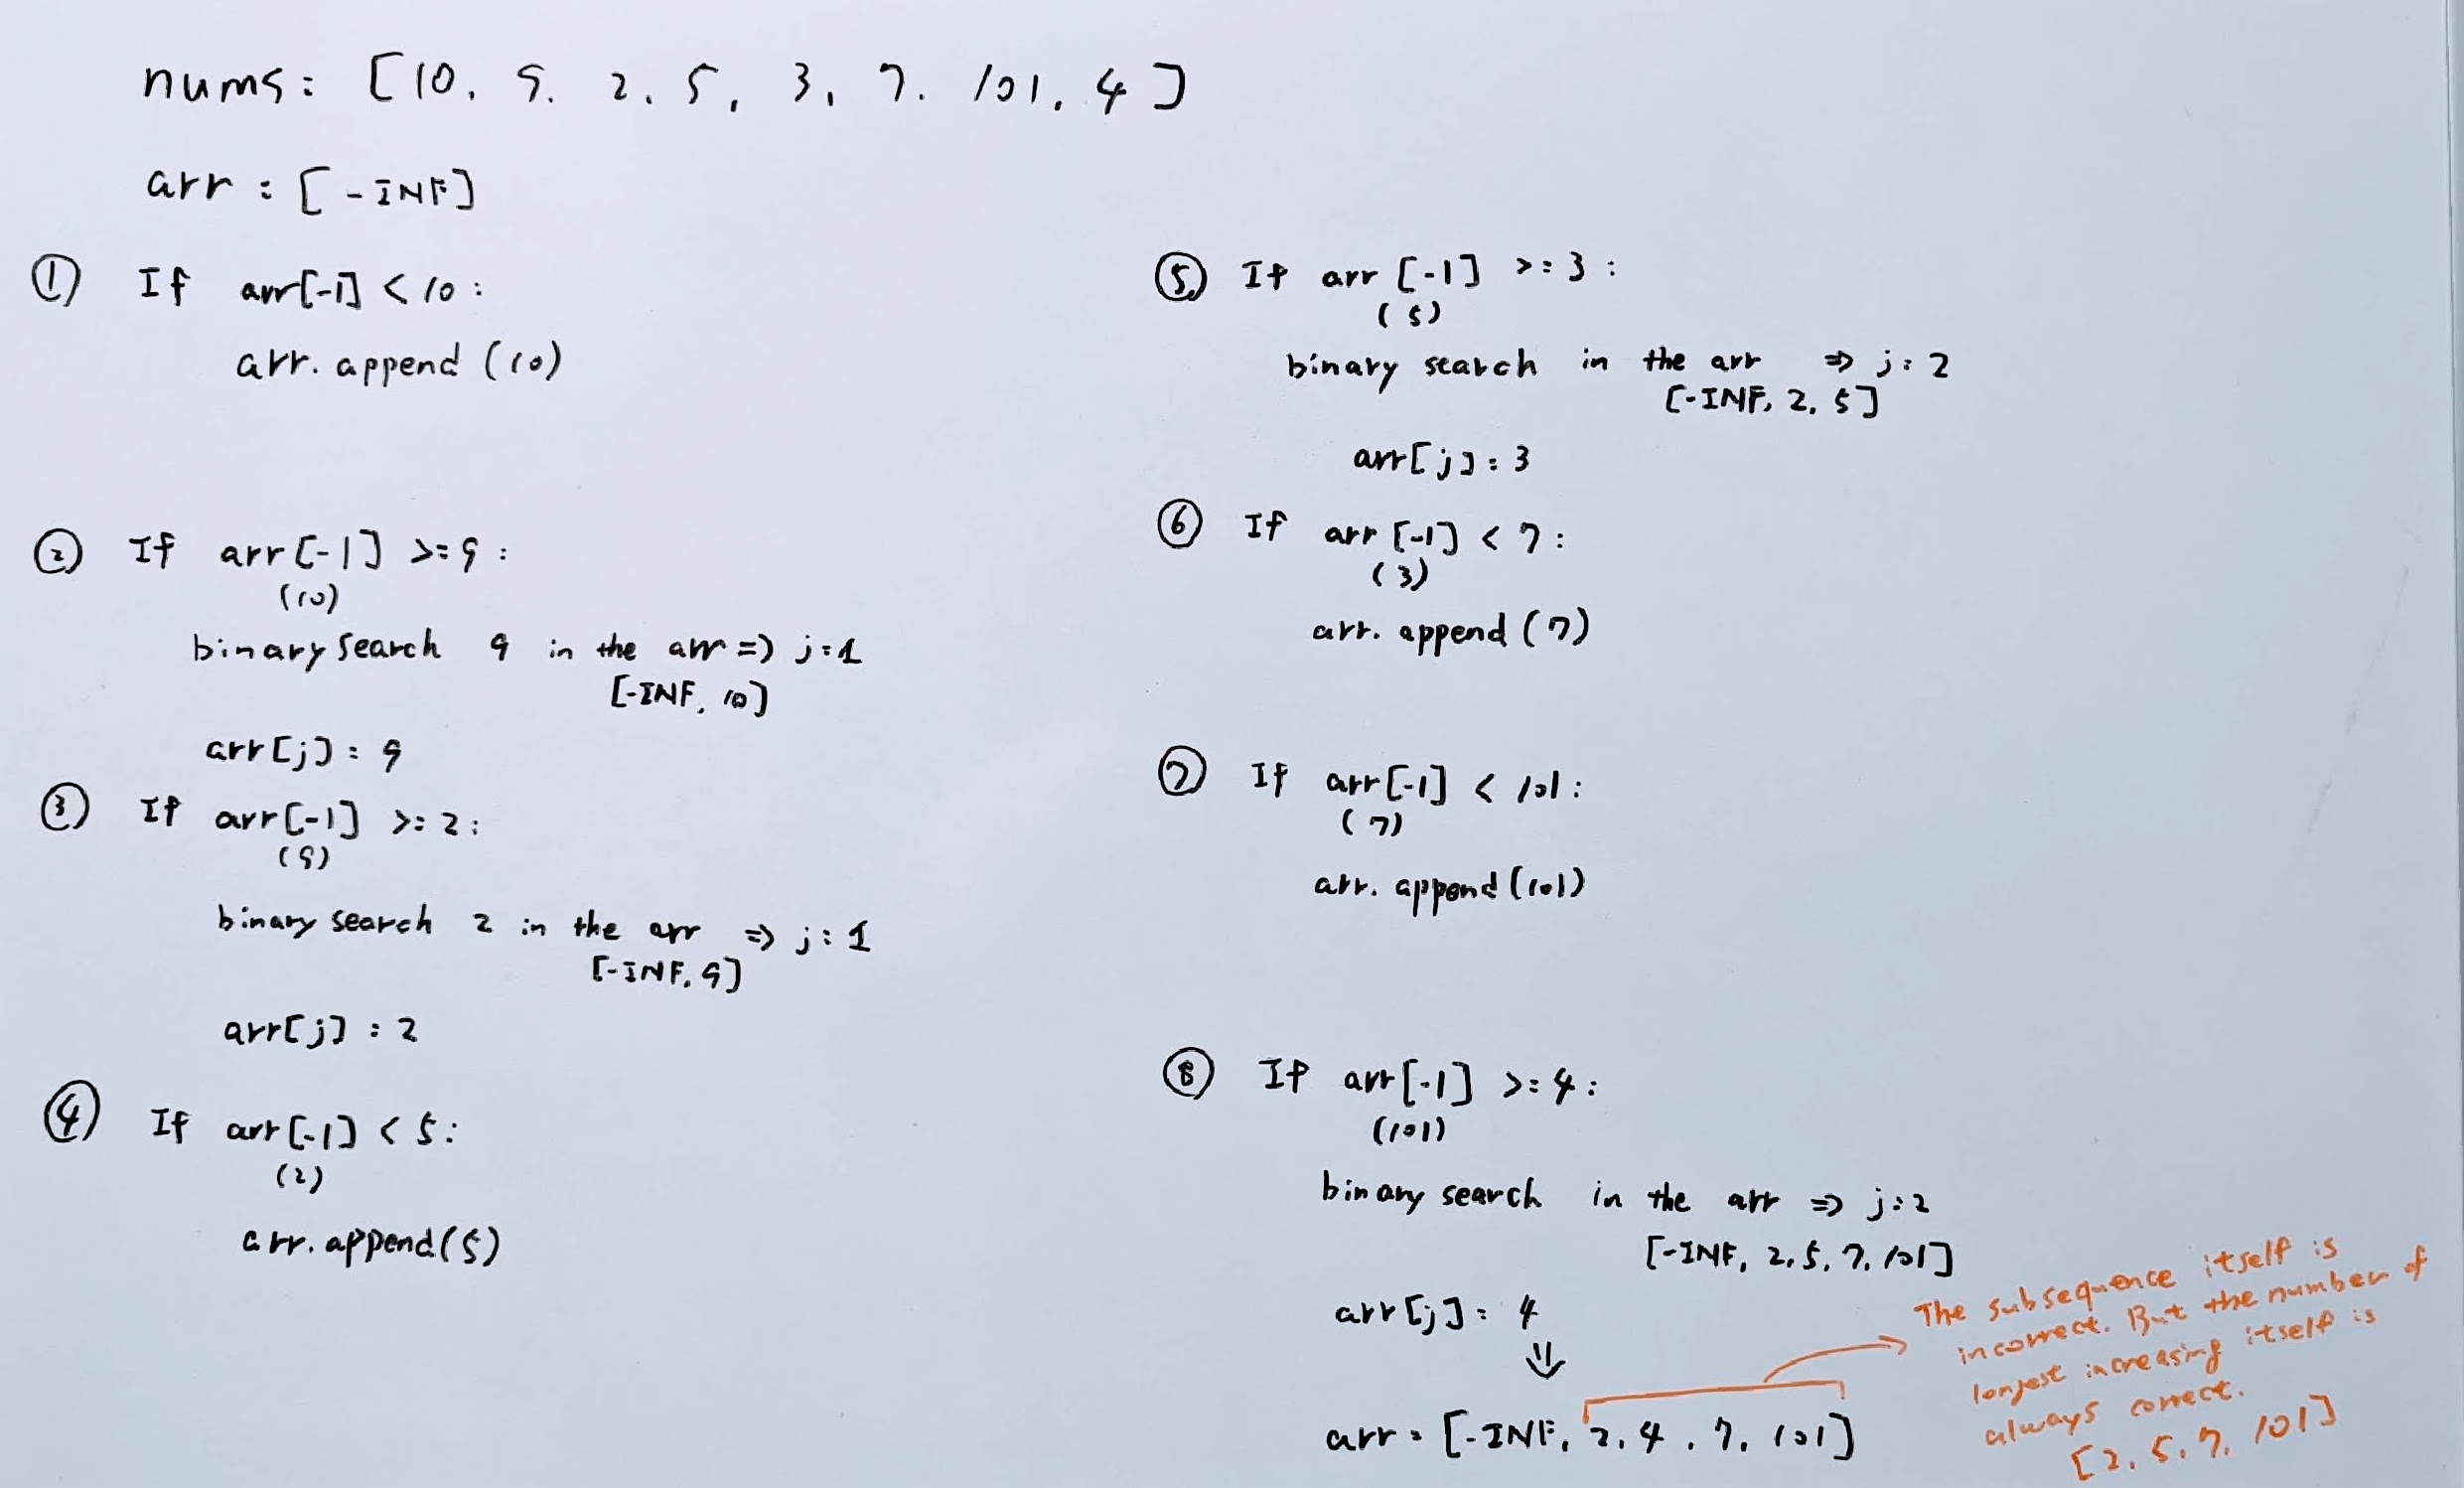 nums: [10, 9. 2. 5, 3, 7. 101, 4]
arr : [-INF]
① If arr[-1] < 10 :
arr. append (10)
② If arr[-1] >= 9 :
(10)
binary search 9 in the arr => j=1
[-INF, 10]
arr[j] = 9
③ If arr[-1] >= 2 :
(9)
binary search 2 in the arr => j = 1
[-INF, 9]
arr[j] = 2
④ If arr[-1] < 5 :
(2)
arr. append(5)
⑤ If arr [-1] >= 3 :
(5)
binary search in the arr => j = 2
[-INF, 2, 5]
arr[j] = 3
⑥ If arr [-1] < 7 :
(3)
arr. append (7)
⑦ If arr[-1] < 101 :
(7)
arr. append (101)
⑧ If arr[-1] >= 4 :
(101)
binary search in the arr => j=2
[-INF, 2, 5, 7, 101]
arr[j] = 4
⇓
arr = [-INF, 2, 4, 7, 101]
The subsequence itself is
incorrect. But the number of
longest increasing itself is
always correct.
[2, 5, 7, 101]